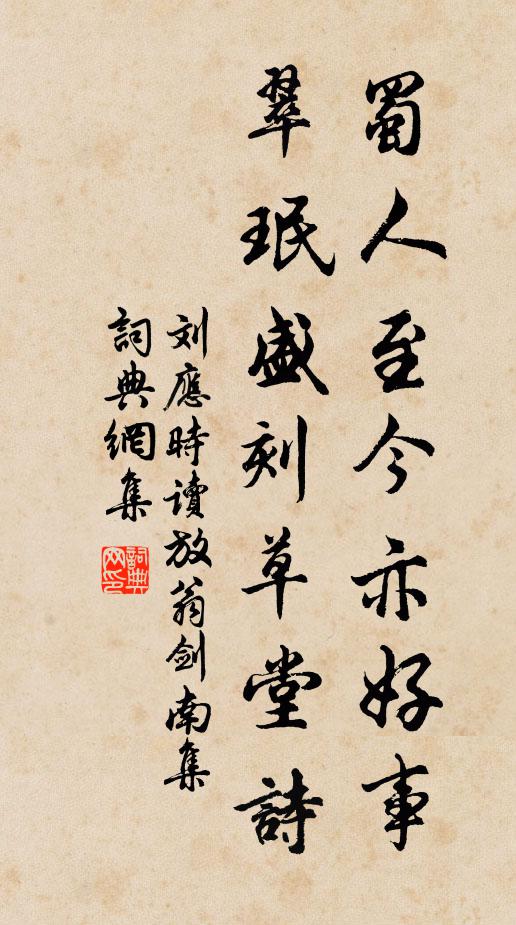 蜀人至今亦好事
翠珉盛刻草堂詩
刘應時讀放翁劍南集
詞典網集
詞典网印